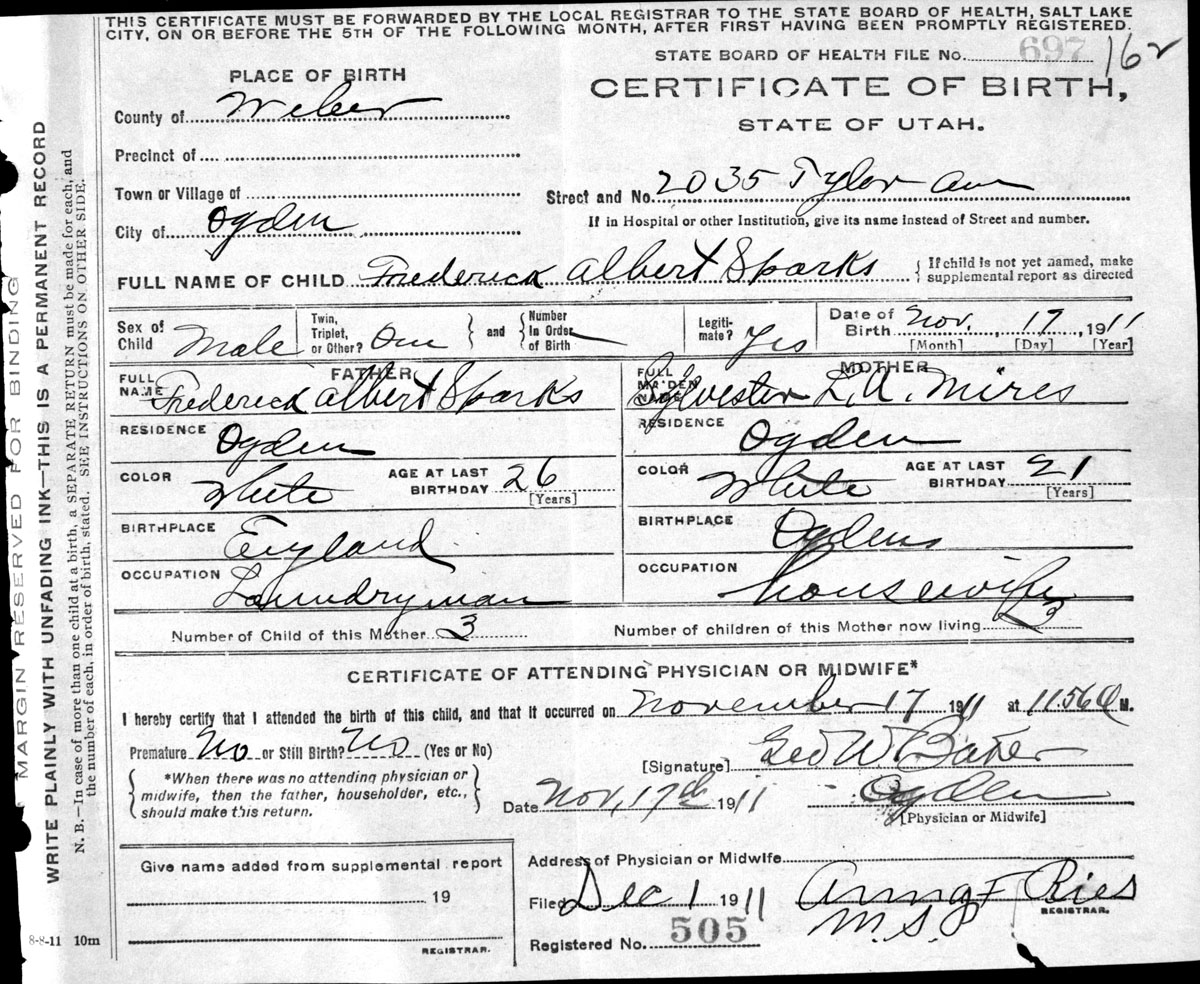 THIS CERTIFICATE MUST BE FORWARDED BY THE LOCAL REGISTRAR TO THE STATE BOARD OF HEALTH, SALT LAKE
CITY, ON OR BEFORE THE 5TH OF THE FOLLOWING MONTH, AFTER FIRST HAVING BEEN PROMPTLY REGISTERED.
STATE BOARD OF HEALTH FILE No. 697 162
PLACE OF BIRTH
CERTIFICATE OF BIRTH,
STATE OF UTAH.
County of Weber
Precinct of
Town or Village of
Street and No. 2035 Tyler Ave
City of Ogden
If in Hospital or other Institution, give its name Instead of Street and number.
FULL NAME OF CHILD Frederick Albert Sparks { If child is not yet named, make
supplemental report as directed
Sex of Child Male
Twin, Triplet, or Other? One } and { Number In Order of Birth
Legiti-mate? Yes
Date of Birth Nov. 17, 1911
[Month] [Day] [Year]
FATHER
FULL NAME Frederick Albert Sparks
RESIDENCE Ogden
COLOR White AGE AT LAST BIRTHDAY 26
[Years]
BIRTHPLACE England
OCCUPATION Laundryman
MOTHER
FULL MAIDEN NAME Sylvester L. A. Mires
RESIDENCE Ogden
COLOR White AGE AT LAST BIRTHDAY 21
[Years]
BIRTHPLACE Ogden
OCCUPATION housewife
Number of Child of this Mother 3 Number of children of this Mother now living 3
CERTIFICATE OF ATTENDING PHYSICIAN OR MIDWIFE*
I hereby certify that I attended the birth of this child, and that it occurred on November 17 1911 at 11.56 a M.
Premature No or Still Birth? No (Yes or No)
[Signature] Geo W. Baker
{ *When there was no attending physician or
midwife, then the father, householder, etc.,
should make this return. }
Date Nov, 17th 1911 Ogden
[Physician or Midwife]
Give name added from supplemental report
19
REGISTRAR.
Address of Physician or Midwife
Filed Dec 1 1911 Anna F Ries
REGISTRAR.
M.S.P
Registered No. 505
8-8-11 10m
MARGIN RESERVED FOR BINDING
WRITE PLAINLY WITH UNFADING INK—THIS IS A PERMANENT RECORD
N. B.—In case of more than one child at a birth, a SEPARATE RETURN must be made for each, and
the number of each, in order of birth, stated. SEE INSTRUCTIONS ON OTHER SIDE.